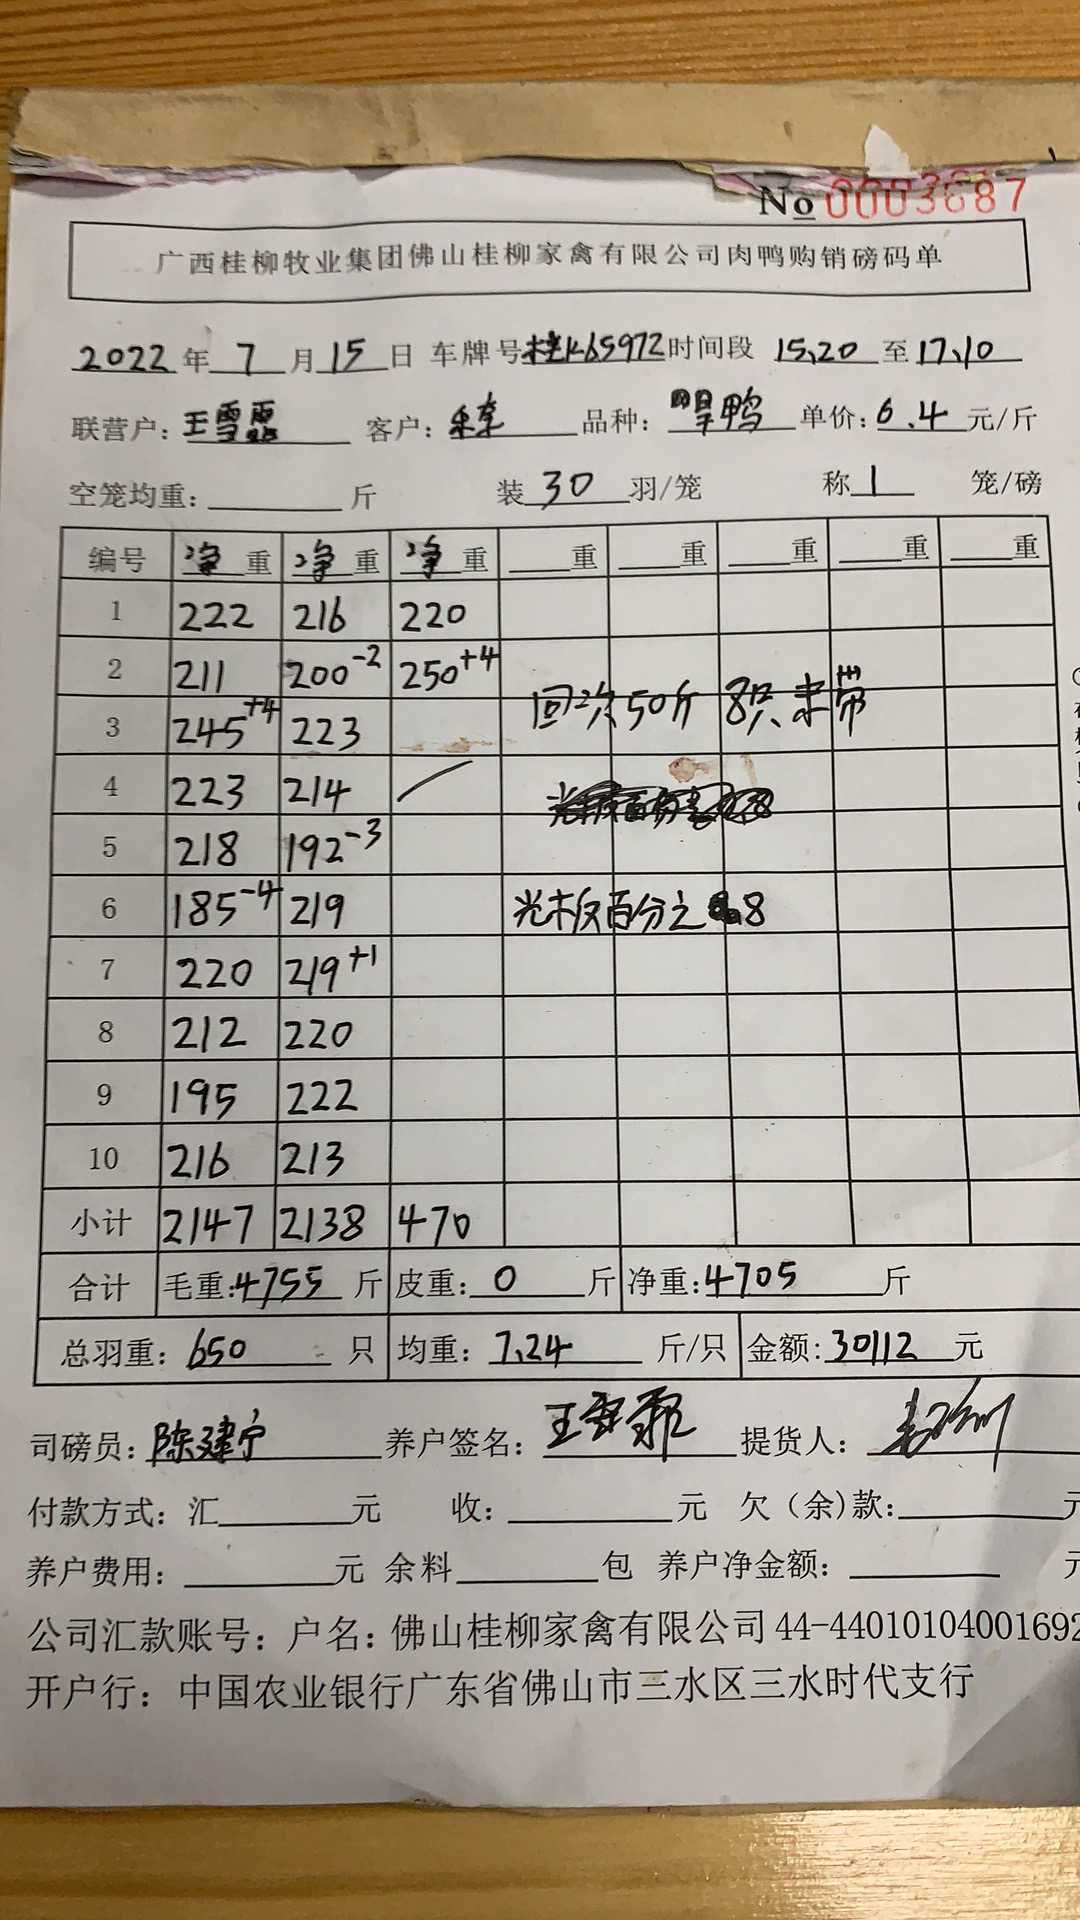 No 0003687
广西桂柳牧业集团佛山桂柳家禽有限公司肉鸭购销磅码单
2022 年 7 月 15 日 车牌号 桂K65972 时间段 15.20 至 17.10
联营户: 王雪 客户: 品种: 鸭 单价: 6.4 元/斤
空笼均重: 斤 装 30 羽/笼 称 1 笼/磅
编号 净重 净重 净重 重 重 重 重 重
1 222 216 220
2 211 200-2 250+4
3 245+4 223 回次50斤 8只未带
4 223 214
5 218 192-3
6 185-4 219 光板百分之 8
7 220 219+1
8 212 220
9 195 222
10 216 213
小计 2147 2138 470
合计 毛重: 4755 斤 皮重: 0 斤 净重: 4705 斤
总羽重: 650 只 均重: 7.24 斤/只 金额: 30112 元
司磅员: 陈建宁 养户签名: 王 提货人:
付款方式: 汇 元 收: 元 欠(余)款: 元
养户费用: 元 余料 包 养户净金额: 元
公司汇款账号: 户名: 佛山桂柳家禽有限公司 44-44010104001692
开户行: 中国农业银行广东省佛山市三水区三水时代支行